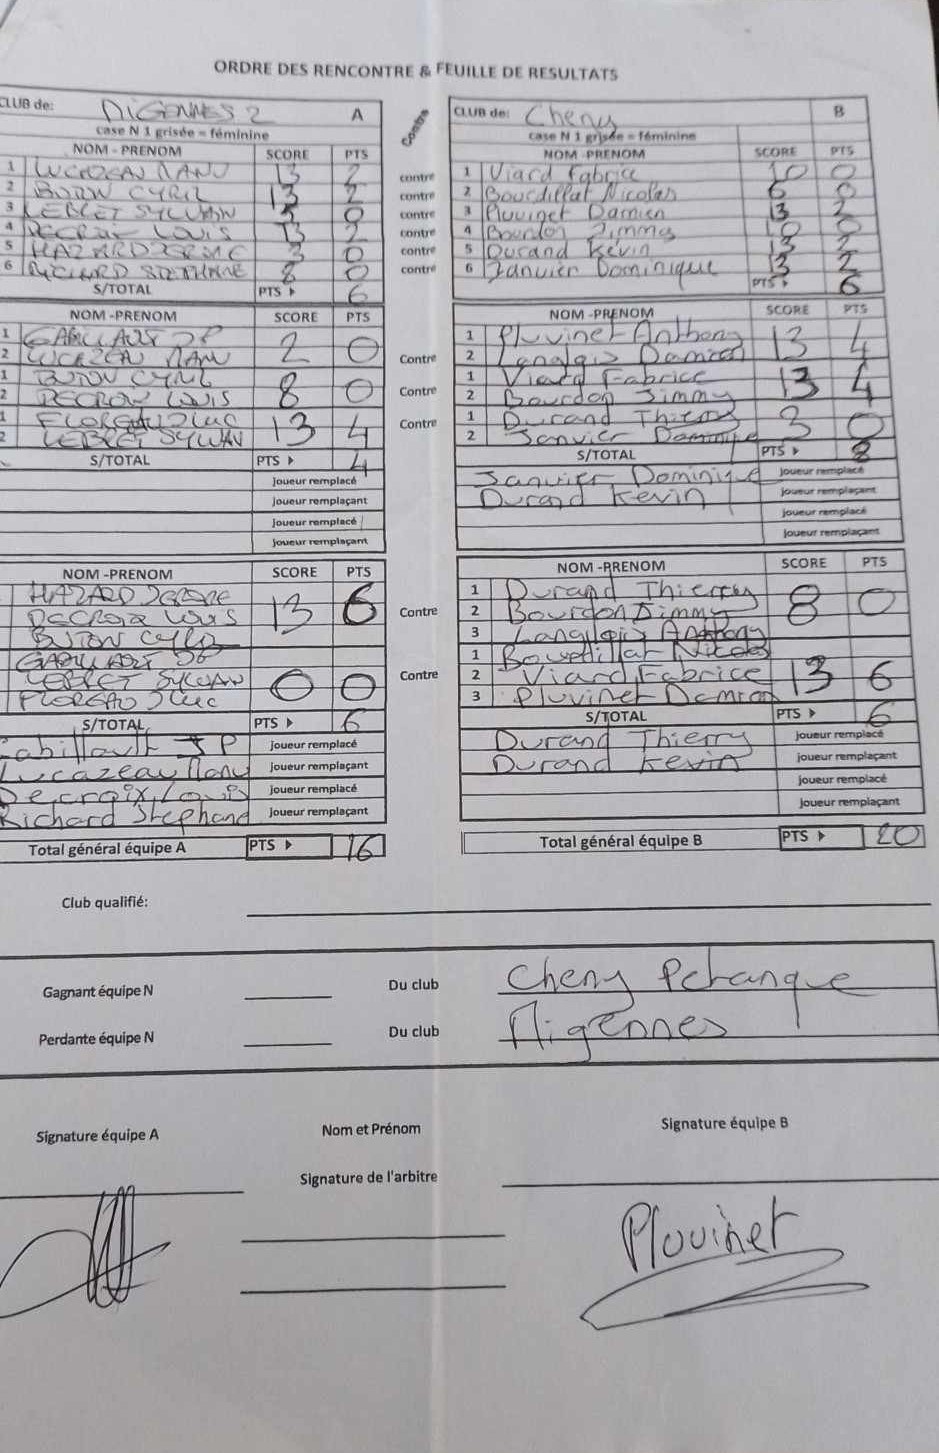 ORDRE DES RENCONTRE & FEUILLE DE RESULTATS
CLUB de: MIGENNES 2 A
case N 1 grisée = féminine
NOM - PRENOM SCORE PTS
1 LUCAZEAU MANU 13 2
2 BUTON CYRIL 13 2
3 LEBRET SYLVAIN 5 0
4 DECROIX LOUIS 13 2
5 HAZARD JEROME 3 0
6 RICHARD STEPHANE 8 0
S/TOTAL PTS 6
Contre
contre
contre
contre
contre
contre
contre
CLUB de: Cheny B
case N 1 grisée = féminine
NOM -PRENOM SCORE PTS
1 Viard Fabrice 10 0
2 Bourdillat Nicolas 6 0
3 Pluvinet Damien 13 2
4 Bourdon Jimmy 10 0
5 Durand Kevin 13 2
6 Janvier Dominique 13 2
PTS 6
NOM -PRENOM SCORE PTS
1 GABILLAULT JP
2 LUCAZEAU MANU 2 0
1 BUTON CYRIL
2 DECROIX LOUIS 8 0
1 FLOREAU JLuc
2 LEBRET SYLVAIN 13 4
S/TOTAL PTS 4
Joueur remplacé
Joueur remplaçant
Joueur remplacé
Joueur remplaçant
Contre
Contre
Contre
NOM -PRENOM SCORE PTS
1 Pluvinet Anthony
2 Langlois Damien 13 4
1 Viard Fabrice
2 Bourdon Jimmy 13 4
1 Durand Thierry
2 Janvier Dominique 3 0
S/TOTAL PTS 8
Janvier Dominique Joueur remplacé
Durand Kevin Joueur remplaçant
Joueur remplacé
Joueur remplaçant
NOM -PRENOM SCORE PTS
HAZARD JEROME
DECROIX LOUIS 13 6
BUTON CYRIL
GABILLAULT JP
LEBRET SYLVAIN 0 0
FLOREAU JLuc
S/TOTAL PTS 6
Gabillault JP Joueur remplacé
Lucazeau Manu Joueur remplaçant
Decroix Louis Joueur remplacé
Richard Stephane Joueur remplaçant
Total général équipe A PTS 16
Contre
Contre
NOM -PRENOM SCORE PTS
1 Durand Thierry
2 Bourdon Jimmy 8 0
3 Langlois Anthony
1 Bourdillat Nicolas
2 Viard Fabrice 13 6
3 Pluvinet Damien
S/TOTAL PTS 6
Durand Thierry Joueur remplacé
Durand Kevin Joueur remplaçant
Joueur remplacé
Joueur remplaçant
Total général équipe B PTS 20
Club qualifié:
Gagnant équipe N Du club Cheny Petanque
Perdante équipe N Du club Migennes
Signature équipe A Nom et Prénom Signature équipe B
Signature de l'arbitre
Pluvinet